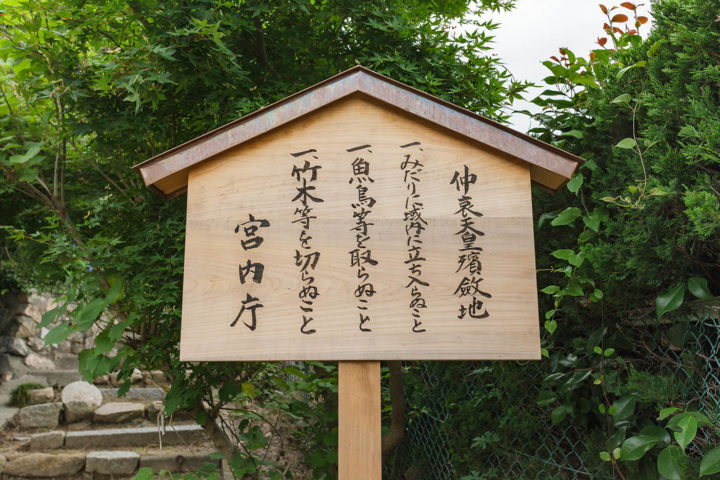 仲哀天皇殯斂地
一、みだりに域内に立ち入らぬこと
一、魚鳥等を取らぬこと
一、竹木等を切らぬこと
宮内庁